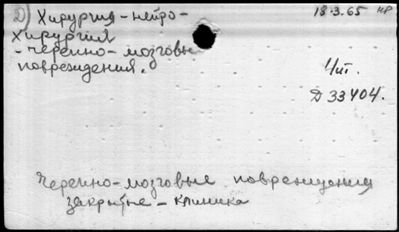 Д) Хирургия - нейро-
хирургия
- черепно-мозговые
повреждения.
18.3.65 нр
Чит.
Д 33404.
Черепно-мозговые повреждения
закрытые - клиника